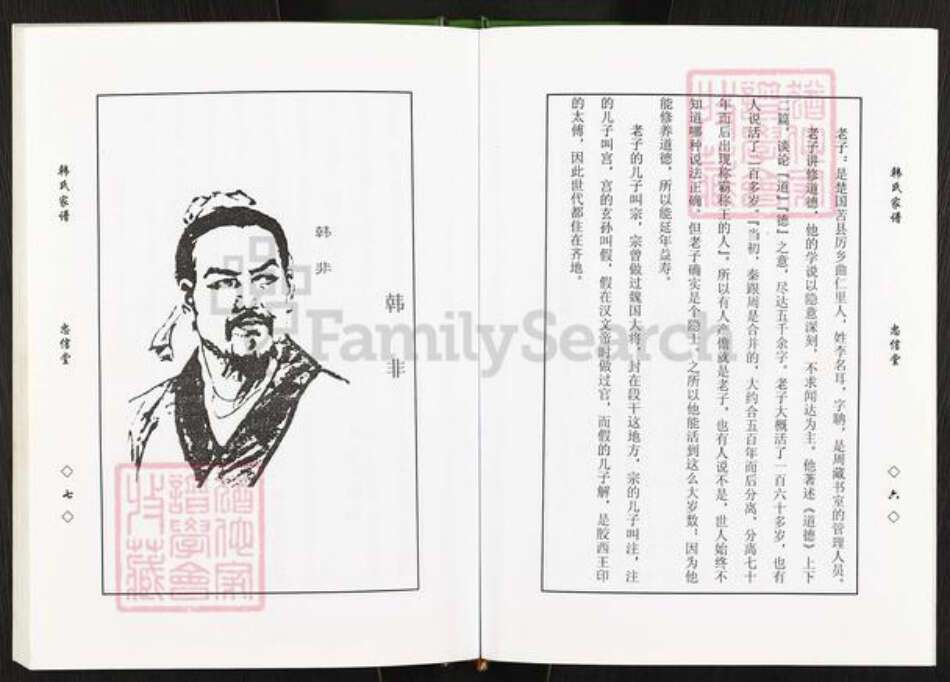 韩氏家谱
忠信堂
六
老子：是楚国苦县厉乡曲仁里人，姓李名耳，字聃，是周藏书室的管理人员。
老子讲修道德，他的学说以隐意深刻，不求闻达为主。他著述《道德》上下
二篇，谈论『道』『德』之意，尽达五千余字。老子大概活了一百六十多岁，也有
人说活了二百多岁。『当初，秦跟周是合并的，大约合五百年而后分离，分离七十
年而后出现称霸称王的人』。所以有人声儋或是老子，也有人说不是，世人始终不
知道哪种说法正确，但老子确实是个隐士。之所以他能活到这么大岁数：因为他
能修养道德，所以能延年益寿。
老子的儿子叫宗，宗曾做过魏国大将，封在段干这地方，宗的儿子叫注，注
的儿子叫宫，宫的玄孙叫假，假在汉文帝时做过官，而假的儿子解，是胶西王印
的太傅，因此世代都住在齐地。
韩非
韩非
韩氏家谱
忠信堂
七
FamilySearch
猶他家
譜學會
收藏
猶他家
譜學會
收藏